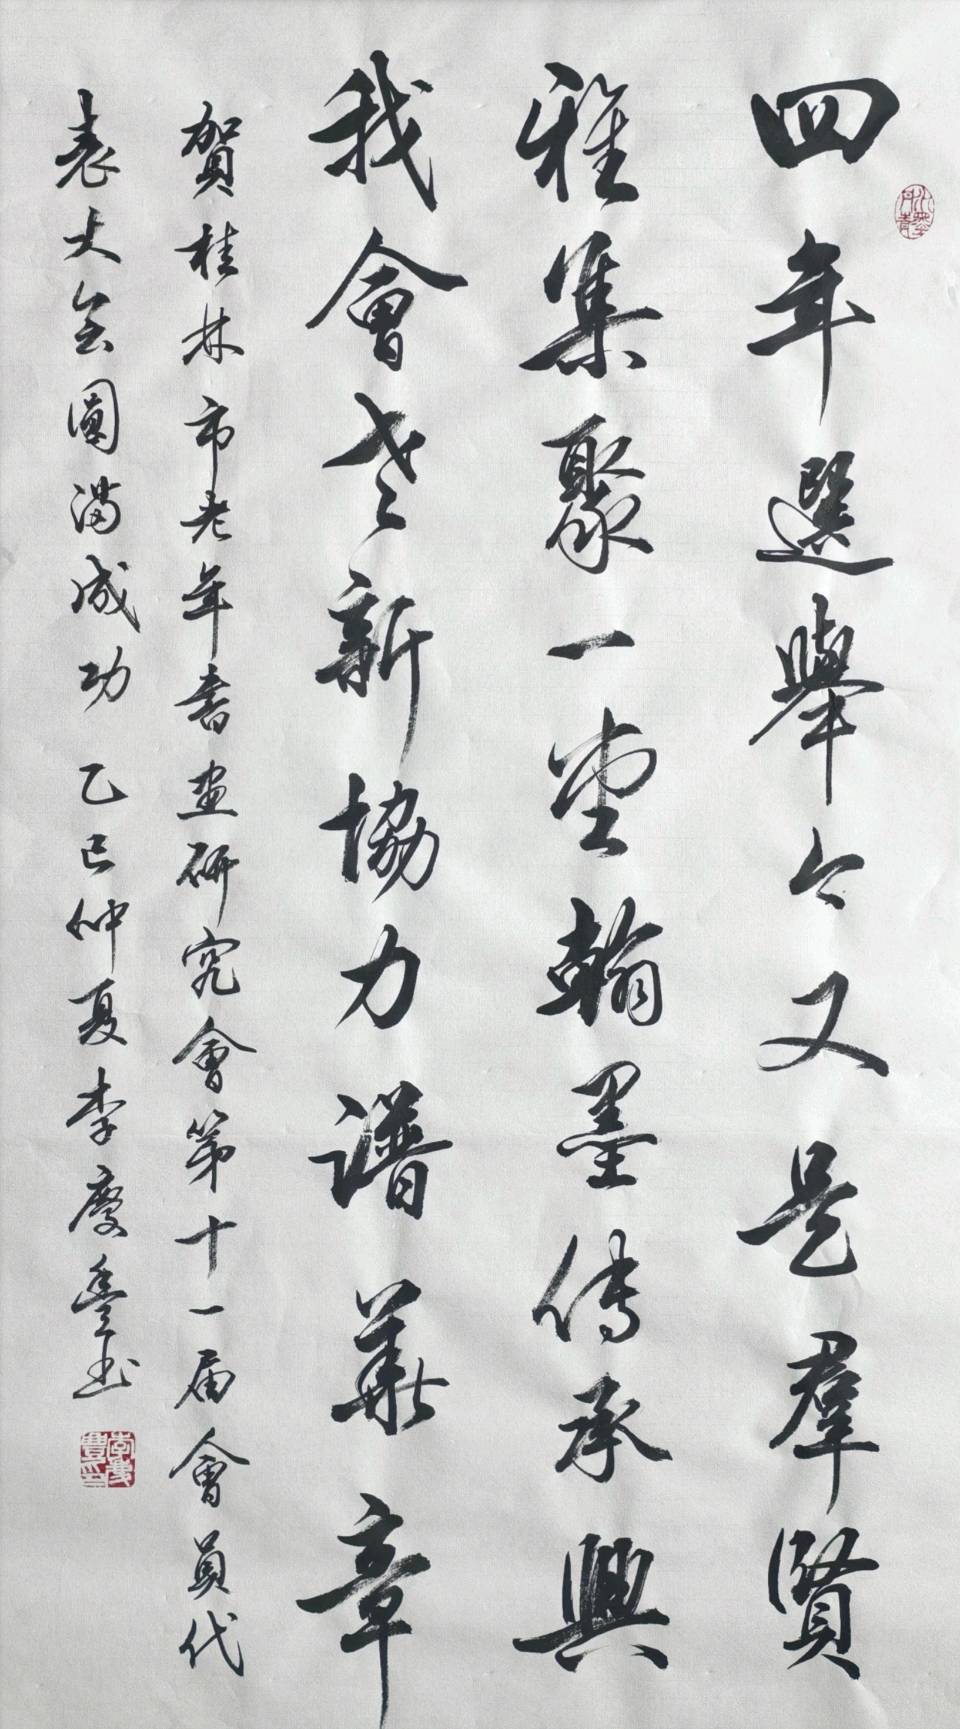 四年選舉今又是羣賢
雅集聚一堂翰墨傳承興
我會老新協力譜華章
賀桂林市老年書畫研究會第十一届會員代
表大会圓滿成功 乙巳仲夏李慶豐书
李慶豐印